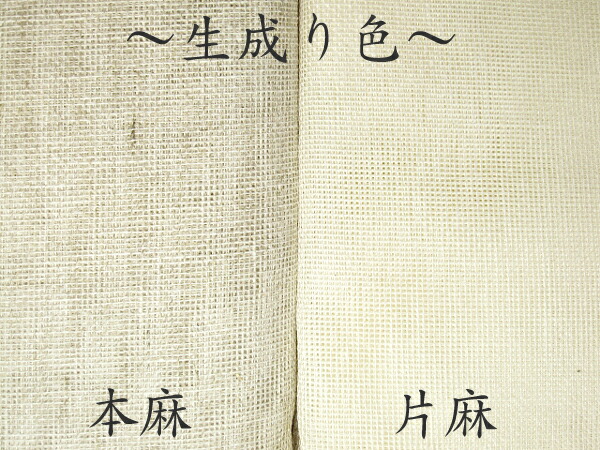 ～生成り色～
本麻
片麻